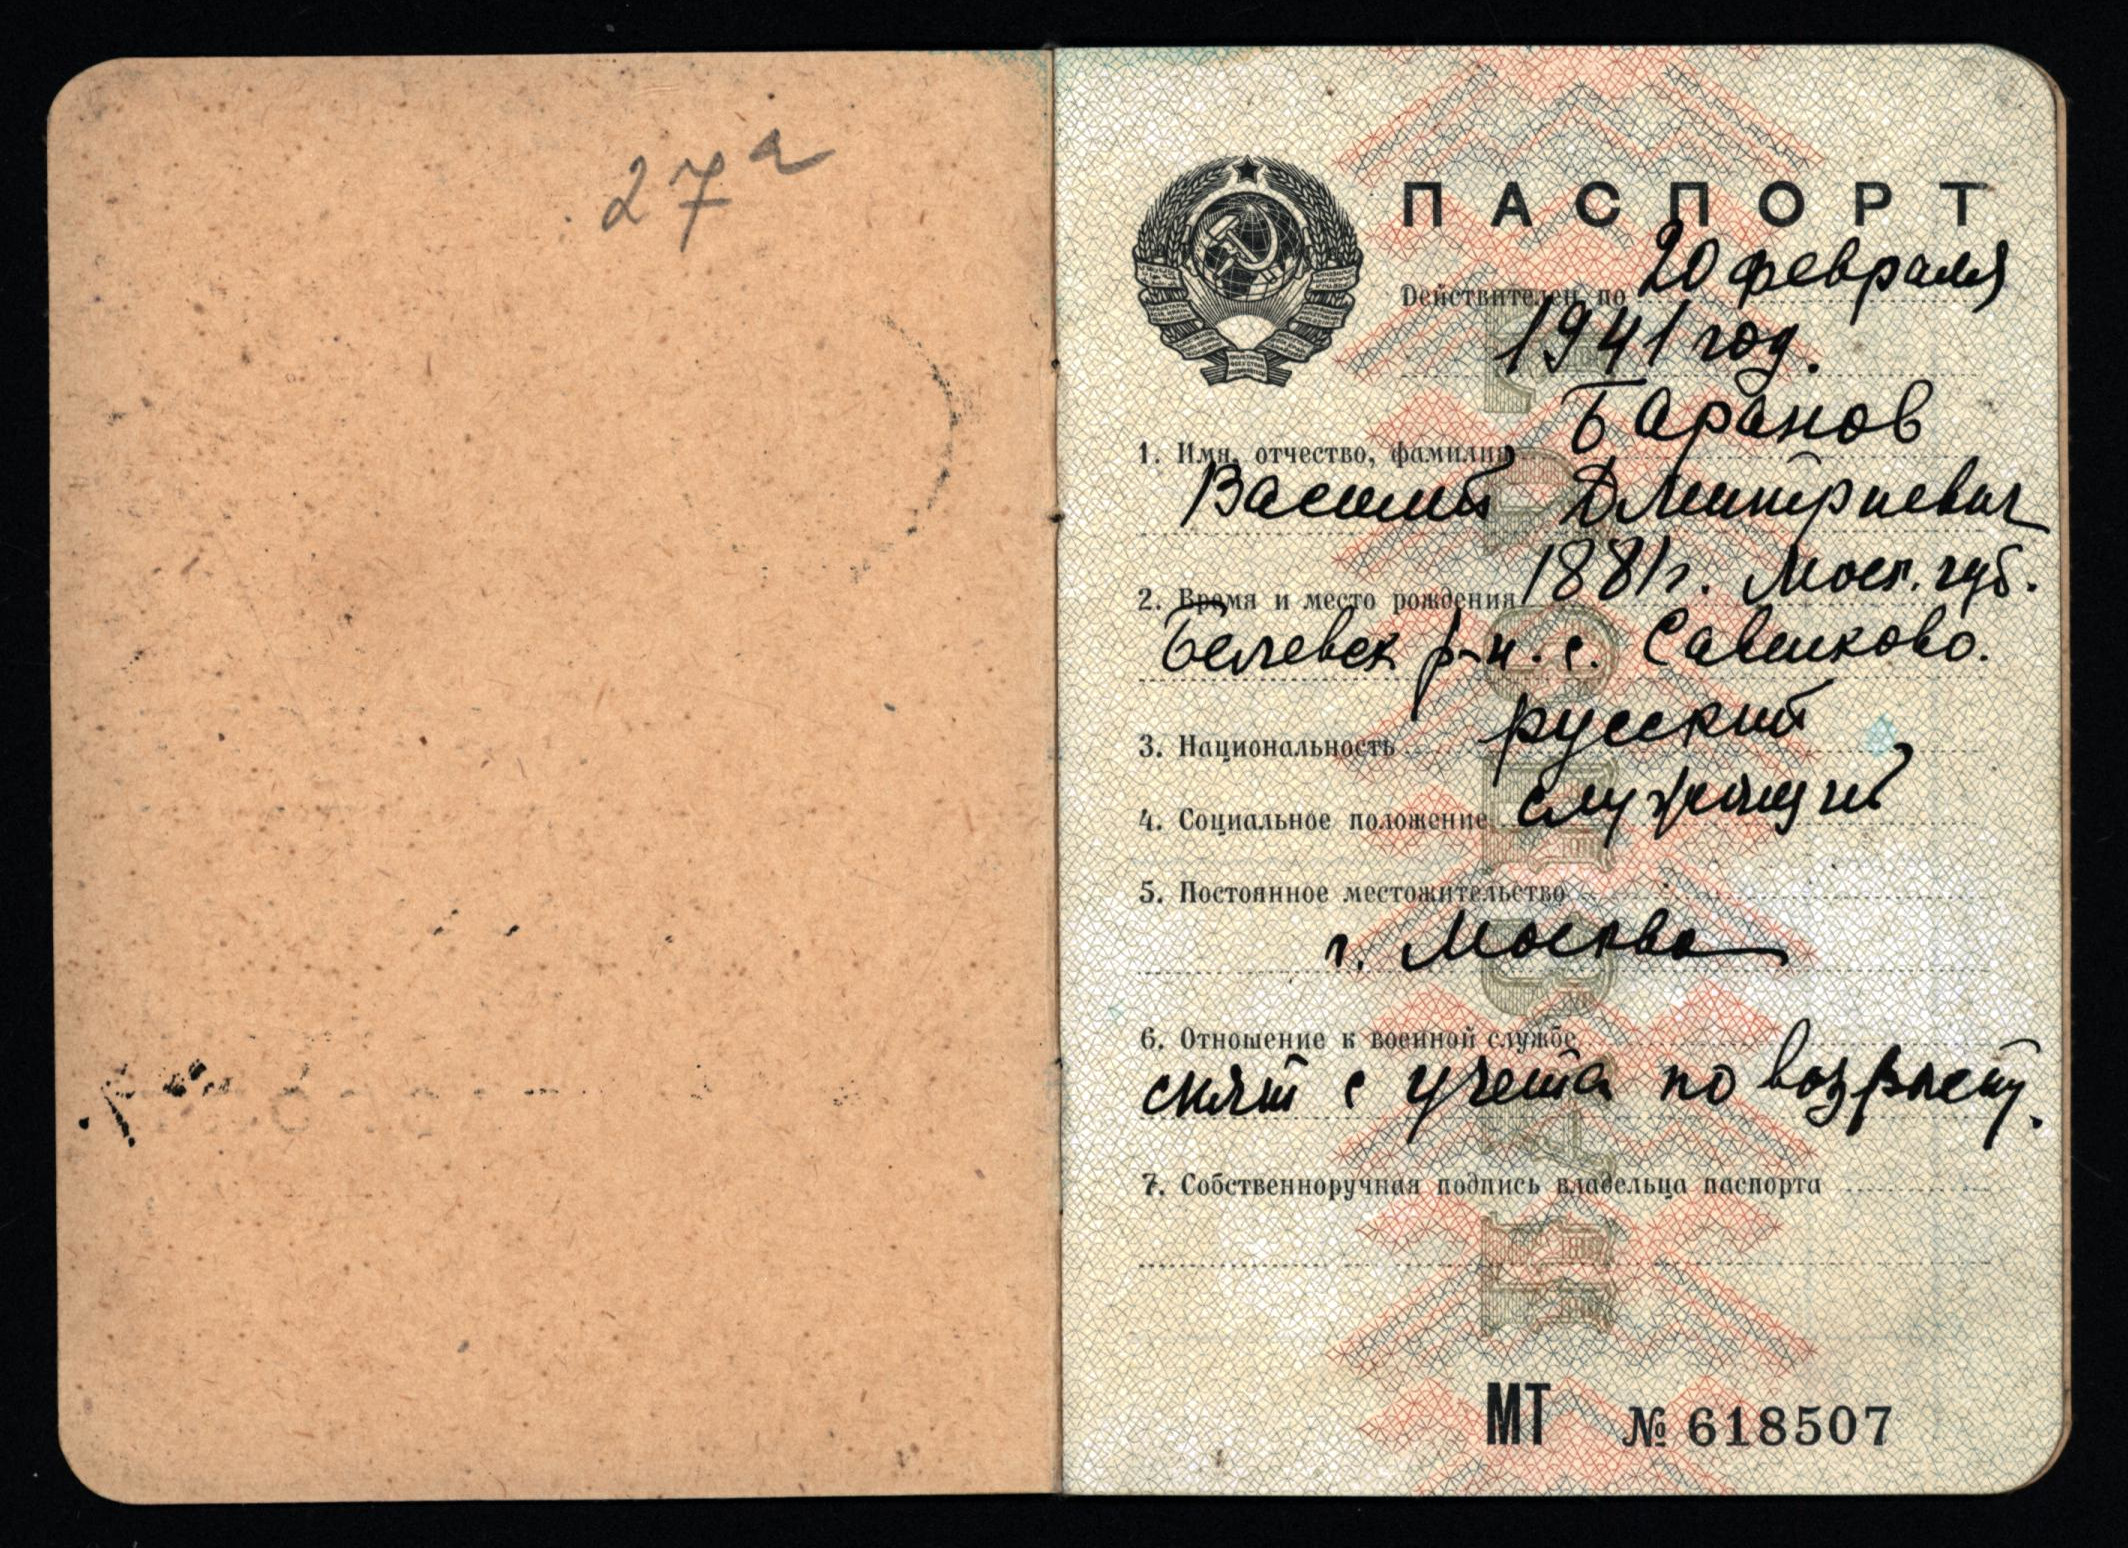 27а
ПАСПОРТ
Действителен по 20 февраля
1941 год.
1. Имя, отчество, фамилия Баранов
Василий Дмитриевич
2. Время и место рождения 1881 г. Моск. губ.
р-н. с.
3. Национальность русский
4. Социальное положение служащий
5. Постоянное местожительство
г. Москва
6. Отношение к военной службе
снят с учета по возрасту.
7. Собственноручная подпись владельца паспорта
ПАСПОРТ
МТ № 618507